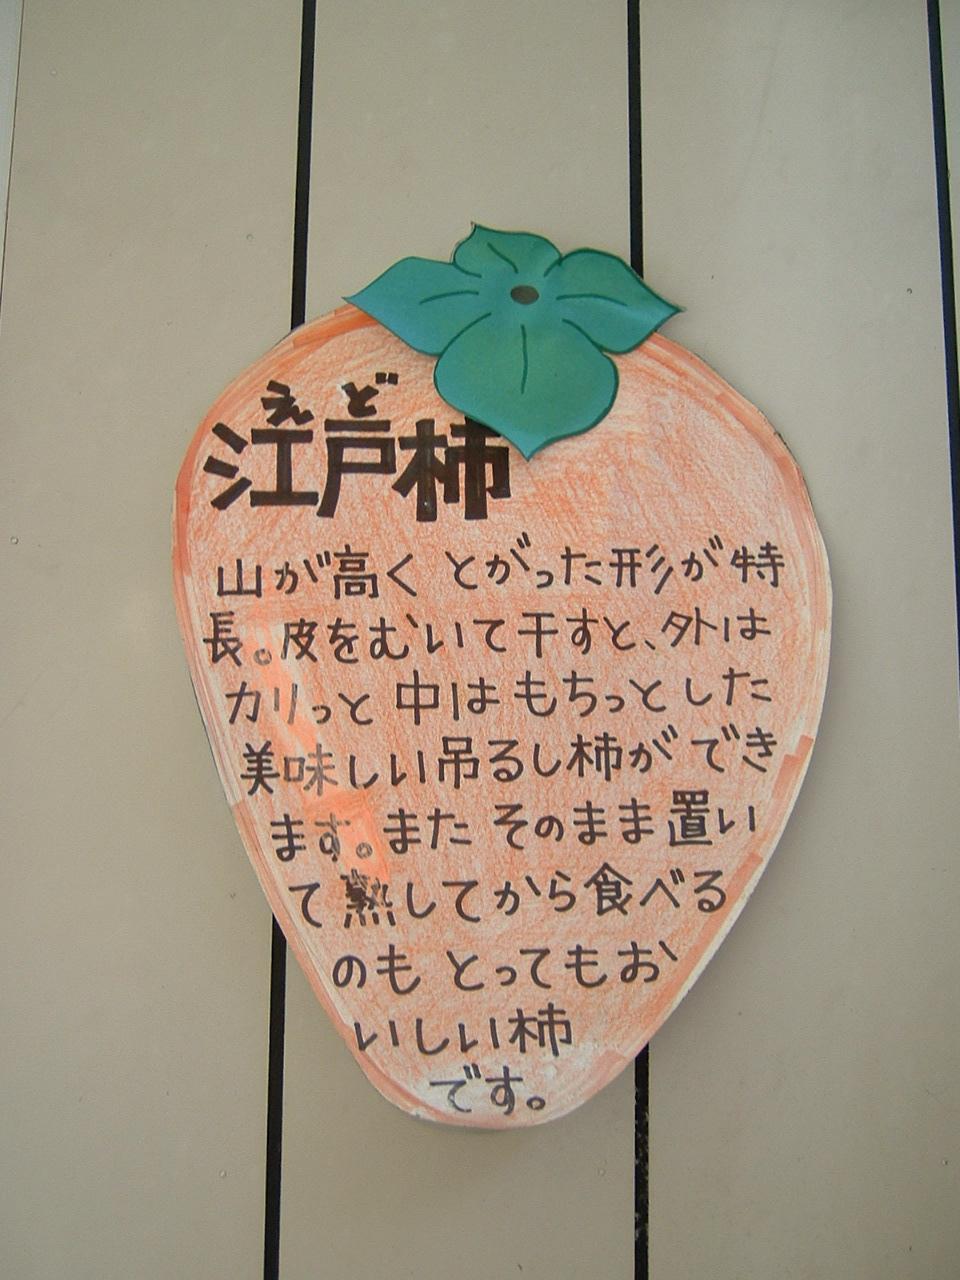 えど
江戸柿
山が高く とがった形が特
長。皮をむいて干すと、外は
カリっと 中は もちっとした
美味しい吊るし柿が でき
ます。また そのまま置い
て 熟してから食べる
のも とってもお
いしい柿
です。